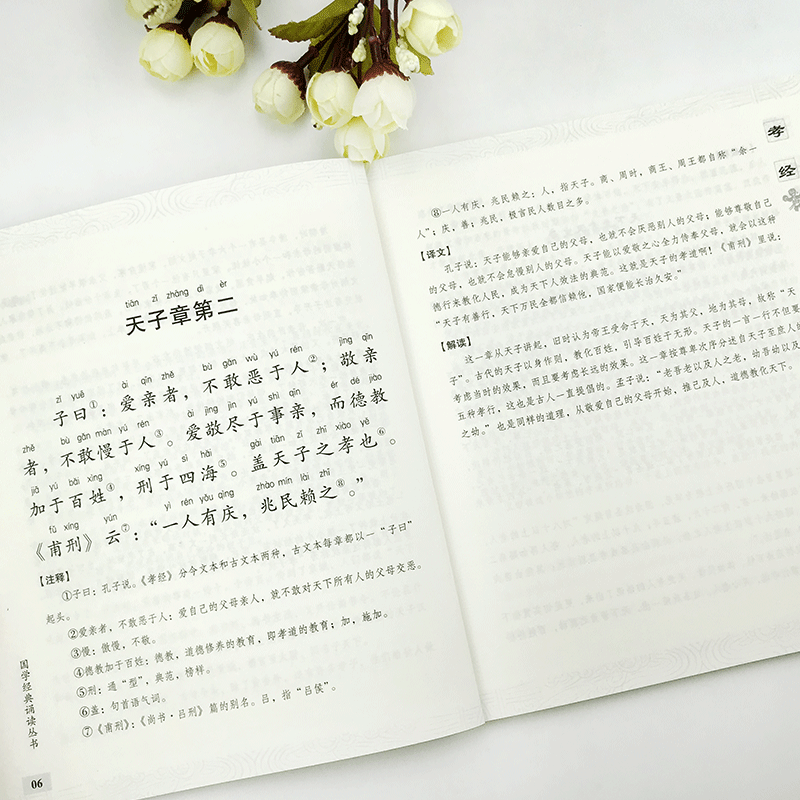 tiān zǐ zhāng dì èr
天子章第二
zǐ yuē ài qīn zhě bù gǎn wù yú rén jìng qīn
子曰①：爱亲者，不敢恶于人②；敬亲
zhě bù gǎn màn yú rén ài jìng jìn yú shì qīn ér dé jiào
者，不敢慢于人③。爱敬尽于事亲，而德教
jiā yú bǎi xìng xíng yú sì hǎi gài tiān zǐ zhī xiào yě
加于百姓④，刑于四海⑤。盖天子之孝也⑥。
fǔ xíng yún yì rén yǒu qìng zhào mín lài zhī
《甫刑》云⑦：“一人有庆，兆民赖之⑧。”
【注释】
①子曰：孔子说。《孝经》分今文本和古文本两种，古文本每章都以一“子曰”
起头。
②爱亲者，不敢恶于人：爱自己的父母亲人，就不敢对天下所有人的父母交恶。
③慢：傲慢，不敬。
④德教加于百姓：德教，道德修养的教育，即孝道的教育；加，施加。
⑤刑：通“型”，典范，榜样。
⑥盖：句首语气词。
⑦《甫刑》：《尚书·吕刑》篇的别名。吕，指“吕侯”。
国学经典诵读丛书
06
孝经
⑧一人有庆，兆民赖之：人，指天子。商、周时，商王、周王都自称“余一
人”；庆，善；兆民，极言民人数目之多。
【译文】
孔子说：天子能够亲爱自己的父母，也就不会厌恶别人的父母；能够尊敬自己
的父母，也就不会怠慢别人的父母。天子能以爱敬之心全力侍奉父母，就会以这种
德行来教化人民，成为天下人效法的典范。这就是天子的孝道啊！《甫刑》里说：
“天子有善行，天下万民全都信赖他，国家便能长治久安。”
【解读】
这一章从天子讲起，旧时认为帝王受命于天，天为其父，地为其母，故称“天
子”。古代的天子以身作则，教化百姓，引导百姓于无形。天子的一言一行不但要
考虑当时的效果，而且要考虑长远的效果。这一章按尊卑次序分述自天子至庶人的
五种孝行，这也是古人一直提倡的。孟子说：“老吾老以及人之老，幼吾幼以及人
之幼。”也是同样的道理，从敬爱自己的父母开始，推己及人，道德教化天下。